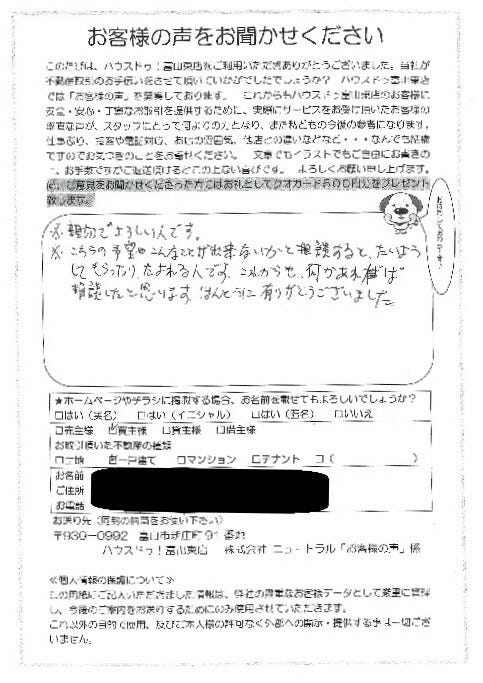 お客様の声をお聞かせください
このたびは、ハウスドゥ！富山東店をご利用いただきありがとうございました。当社が
不動産取引のお手伝いをさせて頂いていかがでしたでしょうか？ ハウスドゥ富山東店
では「お客様の声」を募集しております。 これからもハウスドゥ富山東店のお客様に
安全・安心・丁寧なお取引を提供するために、実際にサービスをお受け頂いたお客様の
率直な声が、スタッフにとって何よりの力となり、また私どもの今後の参考になります。
仕事ぶり、接客や電話対応、お店の雰囲気、他店との違いなどなど・・・なんでも結構
ですのでお気づきのことをお寄せください。 文章でもイラストでもご自由にお書きの
上、お手数ですがご返送頂けるとこの上ない喜びです。 よろしくお願い申し上げます。
尚、ご意見をお聞かせくださった方にはお礼としてクオカード500円分をプレゼント
致します。
お待ちしております♪
※. 親切でよろしい人です。
※. こちらの希望やこんなことが出来ないかと相談すると、たいおう
してもらったり、たよれる人です。これからも、何かあれば
相談したいと思います。ほんとうに有りがとうございました。
★ホームページやチラシに掲載する場合、お名前を載せてもよろしいでしょうか？
□はい（実名） □はい（イニシャル） □はい（匿名） □いいえ
□売主様 ☑買主様 □貸主様 □借主様
お取引頂いた不動産の種類
□土地 ☑一戸建て □マンション □テナント □（ ）
お名前
ご住所
お電話
お送り先（同封の封筒をお使い下さい）
〒930-0992 富山市新庄町91番地
ハウスドゥ！富山東店 株式会社ニュートラル「お客様の声」係
≪個人情報の保護について≫
この用紙にご記入いただきました情報は、弊社の貴重なお客様データとして厳重に管理
し、今後のご案内をお送りするためにのみ使用させていただきます。
これ以外の目的で使用、及びご本人様の許可なく外部への開示・提供する事は一切ござ
いません。